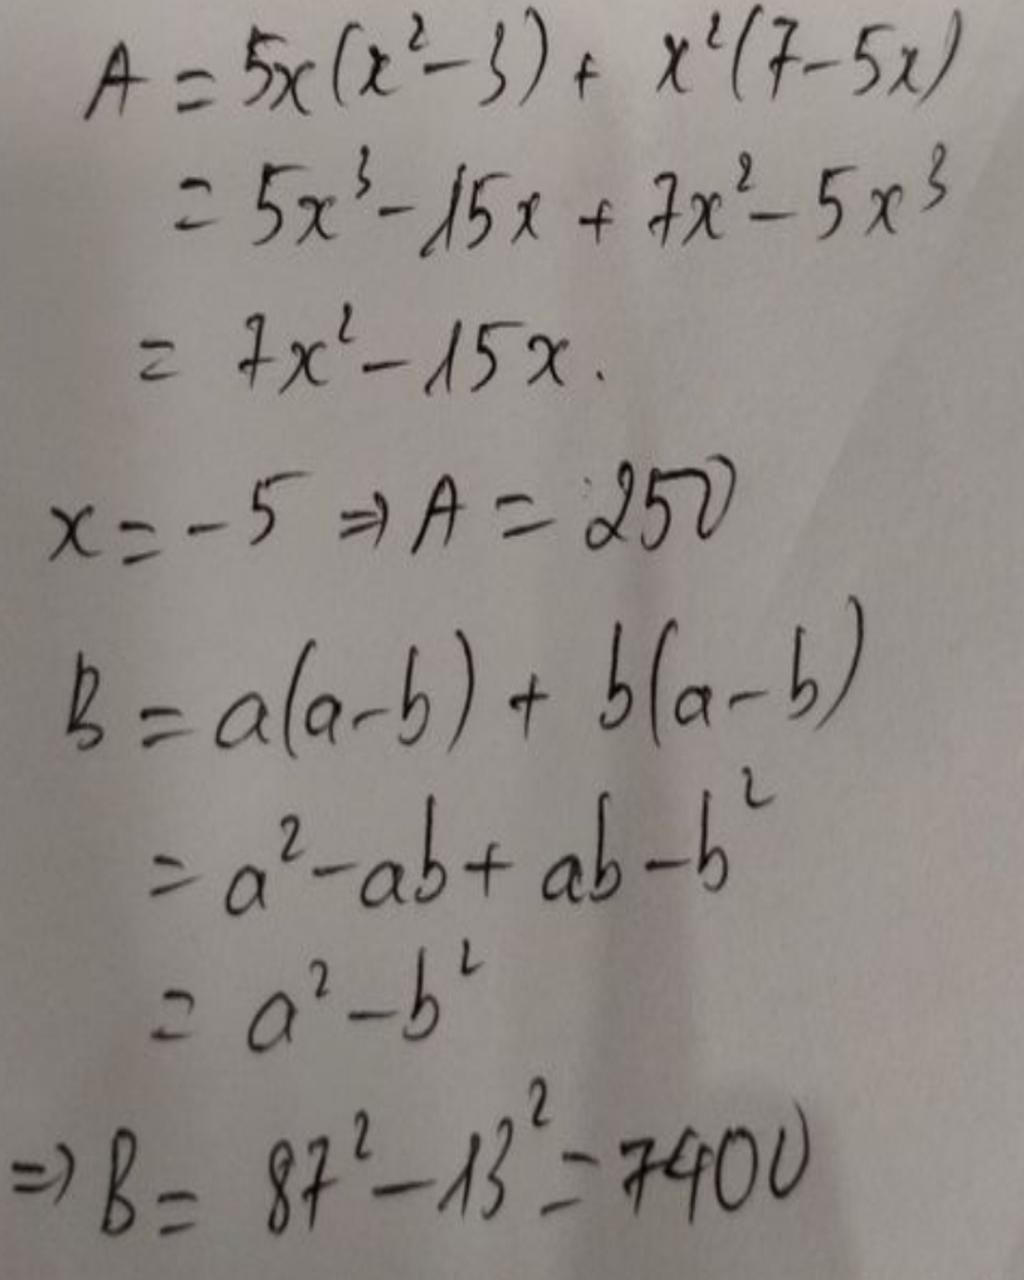 A = 5x(x² - 3) + x²(7 - 5x)
= 5x³ - 15x + 7x² - 5x³
= 7x² - 15x.
x = -5 ⇒ A = 250
B = a(a - b) + b(a - b)
= a² - ab + ab - b²
= a² - b²
⇒ B = 87² - 13² = 7400